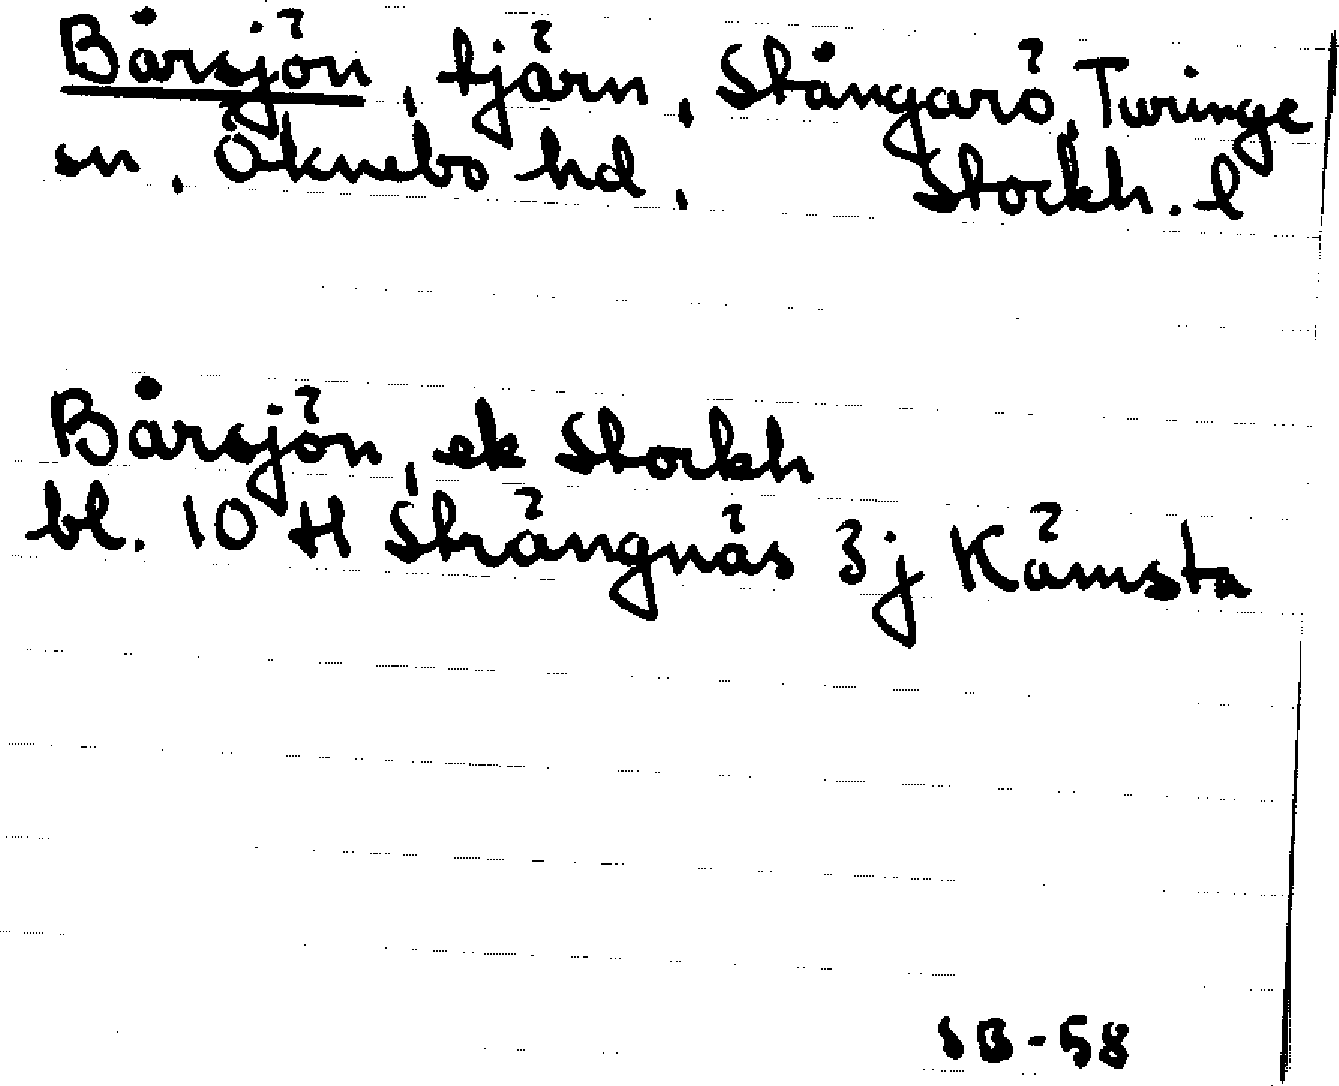 Bårsjön, tjärn, Stångarö, Turinge
sn, Öknebo hd, Stockh. l
Bårsjön, ek Stockh
bl. 10 H Strängnäs 3j Kämsta
SB-58